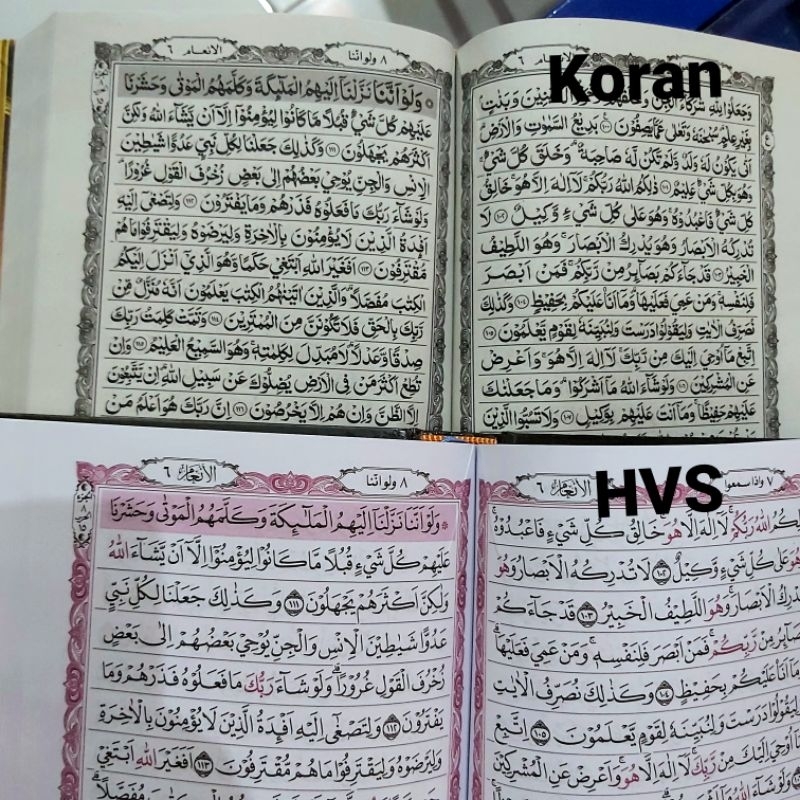 Koran
الانعام ٦
٨ ولواننا
وَلَوْ اَنَّنَا نَزَّلْنَآ اِلَيْهِمُ الْمَلٰۤىِٕكَةَ وَكَلَّمَهُمُ الْمَوْتٰى وَحَشَرْنَا
عَلَيْهِمْ كُلَّ شَيْءٍ قُبُلًا مَّا كَانُوْا لِيُؤْمِنُوْٓا اِلَّآ اَنْ يَّشَاۤءَ اللّٰهُ وَلٰكِنَّ
اَكْثَرَهُمْ يَجْهَلُوْنَ ١١١ وَكَذٰلِكَ جَعَلْنَا لِكُلِّ نَبِيٍّ عَدُوًّا شَيٰطِيْنَ
الْاِنْسِ وَالْجِنِّ يُوْحِيْ بَعْضُهُمْ اِلٰى بَعْضٍ زُخْرُفَ الْقَوْلِ غُرُوْرًا
وَلَوْ شَاۤءَ رَبُّكَ مَا فَعَلُوْهُ فَذَرْهُمْ وَمَا يَفْتَرُوْنَ ١١٢ وَلِتَصْغٰٓى اِلَيْهِ
اَفْـِٕدَةُ الَّذِيْنَ لَا يُؤْمِنُوْنَ بِالْاٰخِرَةِ وَلِيَرْضَوْهُ وَلِيَقْتَرِفُوْا مَا هُمْ
مُّقْتَرِفُوْنَ ١١٣ اَفَغَيْرَ اللّٰهِ اَبْتَغِيْ حَكَمًا وَّهُوَ الَّذِيْٓ اَنْزَلَ اِلَيْكُمُ
الْكِتٰبَ مُفَصَّلًا وَالَّذِيْنَ اٰتَيْنٰهُمُ الْكِتٰبَ يَعْلَمُوْنَ اَنَّهٗ مُنَزَّلٌ مِّنْ
رَّبِّكَ بِالْحَقِّ فَلَا تَكُوْنَنَّ مِنَ الْمُمْتَرِيْنَ ١١٤ وَتَمَّتْ كَلِمَتُ رَبِّكَ
صِدْقًا وَّعَدْلًا لَا مُبَدِّلَ لِكَلِمٰتِهٖ وَهُوَ السَّمِيْعُ الْعَلِيْمُ ١١٥ وَاِنْ
تُطِعْ اَكْثَرَ مَنْ فِى الْاَرْضِ يُضِلُّوْكَ عَنْ سَبِيْلِ اللّٰهِ اِنْ يَّتَّبِعُوْنَ
اِلَّا الظَّنَّ وَاِنْ هُمْ اِلَّا يَخْرُصُوْنَ ١١٦ اِنَّ رَبَّكَ هُوَ اَعْلَمُ مَنْ
وَجَعَلُوْا لِلّٰهِ شُرَكَاۤءَ الْجِنَّ وَبَنٰتٍ
بِغَيْرِ عِلْمٍ سُبْحٰنَهٗ وَتَعٰلٰى عَمَّا يَصِفُوْنَ ١٠٠ بَدِيْعُ السَّمٰوٰتِ وَالْاَرْضِ
اَنّٰى يَكُوْنُ لَهٗ وَلَدٌ وَّلَمْ تَكُنْ لَّهٗ صَاحِبَةٌ وَخَلَقَ كُلَّ شَيْءٍ
وَهُوَ بِكُلِّ شَيْءٍ عَلِيْمٌ ١٠١ ذٰلِكُمُ اللّٰهُ رَبُّكُمْ لَآ اِلٰهَ اِلَّا هُوَ خَالِقُ
كُلِّ شَيْءٍ فَاعْبُدُوْهُ وَهُوَ عَلٰى كُلِّ شَيْءٍ وَّكِيْلٌ ١٠٢ لَا
تُدْرِكُهُ الْاَبْصَارُ وَهُوَ يُدْرِكُ الْاَبْصَارَ وَهُوَ اللَّطِيْفُ
الْخَبِيْرُ ١٠٣ قَدْ جَاۤءَكُمْ بَصَاۤىِٕرُ مِنْ رَّبِّكُمْ فَمَنْ اَبْصَرَ
فَلِنَفْسِهٖ وَمَنْ عَمِيَ فَعَلَيْهَا وَمَآ اَنَا۠ عَلَيْكُمْ بِحَفِيْظٍ ١٠٤ وَكَذٰلِكَ
نُصَرِّفُ الْاٰيٰتِ وَلِيَقُوْلُوْا دَرَسْتَ وَلِنُبَيِّنَهٗ لِقَوْمٍ يَّعْلَمُوْنَ ١٠٥
اِتَّبِعْ مَآ اُوْحِيَ اِلَيْكَ مِنْ رَّبِّكَ لَآ اِلٰهَ اِلَّا هُوَ وَاَعْرِضْ
عَنِ الْمُشْرِكِيْنَ ١٠٦ وَلَوْ شَاۤءَ اللّٰهُ مَآ اَشْرَكُوْا وَمَا جَعَلْنٰكَ
عَلَيْهِمْ حَفِيْظًا وَمَآ اَنْتَ عَلَيْهِمْ بِوَكِيْلٍ ١٠٧ وَلَا تَسُبُّوا الَّذِيْنَ
HVS
الانعام ٦
٨ ولواننا
وَلَوْ اَنَّنَا نَزَّلْنَآ اِلَيْهِمُ الْمَلٰۤىِٕكَةَ وَكَلَّمَهُمُ الْمَوْتٰى وَحَشَرْنَا
عَلَيْهِمْ كُلَّ شَيْءٍ قُبُلًا مَّا كَانُوْا لِيُؤْمِنُوْٓا اِلَّآ اَنْ يَّشَاۤءَ اللّٰهُ
وَلٰكِنَّ اَكْثَرَهُمْ يَجْهَلُوْنَ ١١١ وَكَذٰلِكَ جَعَلْنَا لِكُلِّ نَبِيٍّ
عَدُوًّا شَيٰطِيْنَ الْاِنْسِ وَالْجِنِّ يُوْحِيْ بَعْضُهُمْ اِلٰى بَعْضٍ
زُخْرُفَ الْقَوْلِ غُرُوْرًا وَلَوْ شَاۤءَ رَبُّكَ مَا فَعَلُوْهُ فَذَرْهُمْ وَمَا
يَفْتَرُوْنَ ١١٢ وَلِتَصْغٰٓى اِلَيْهِ اَفْـِٕدَةُ الَّذِيْنَ لَا يُؤْمِنُوْنَ بِالْاٰخِرَةِ
وَلِيَرْضَوْهُ وَلِيَقْتَرِفُوْا مَا هُمْ مُّقْتَرِفُوْنَ ١١٣ اَفَغَيْرَ اللّٰهِ اَبْتَغِيْ
الانعام ٦
٧ واذا سمعوا
اللّٰهُ رَبُّكُمْ لَآ اِلٰهَ اِلَّا هُوَ خَالِقُ كُلِّ شَيْءٍ فَاعْبُدُوْهُ
عَلٰى كُلِّ شَيْءٍ وَّكِيْلٌ ١٠٢ لَا تُدْرِكُهُ الْاَبْصَارُ وَهُوَ
الْاَبْصَارَ وَهُوَ اللَّطِيْفُ الْخَبِيْرُ ١٠٣ قَدْ جَاۤءَكُمْ
مِنْ رَّبِّكُمْ فَمَنْ اَبْصَرَ فَلِنَفْسِهٖ وَمَنْ عَمِيَ فَعَلَيْهَا
عَلَيْكُمْ بِحَفِيْظٍ ١٠٤ وَكَذٰلِكَ نُصَرِّفُ الْاٰيٰتِ
دَرَسْتَ وَلِنُبَيِّنَهٗ لِقَوْمٍ يَّعْلَمُوْنَ ١٠٥ اِتَّبِعْ
اُوْحِيَ اِلَيْكَ مِنْ رَّبِّكَ لَآ اِلٰهَ اِلَّا هُوَ وَاَعْرِضْ عَنِ الْمُشْرِكِيْنَ